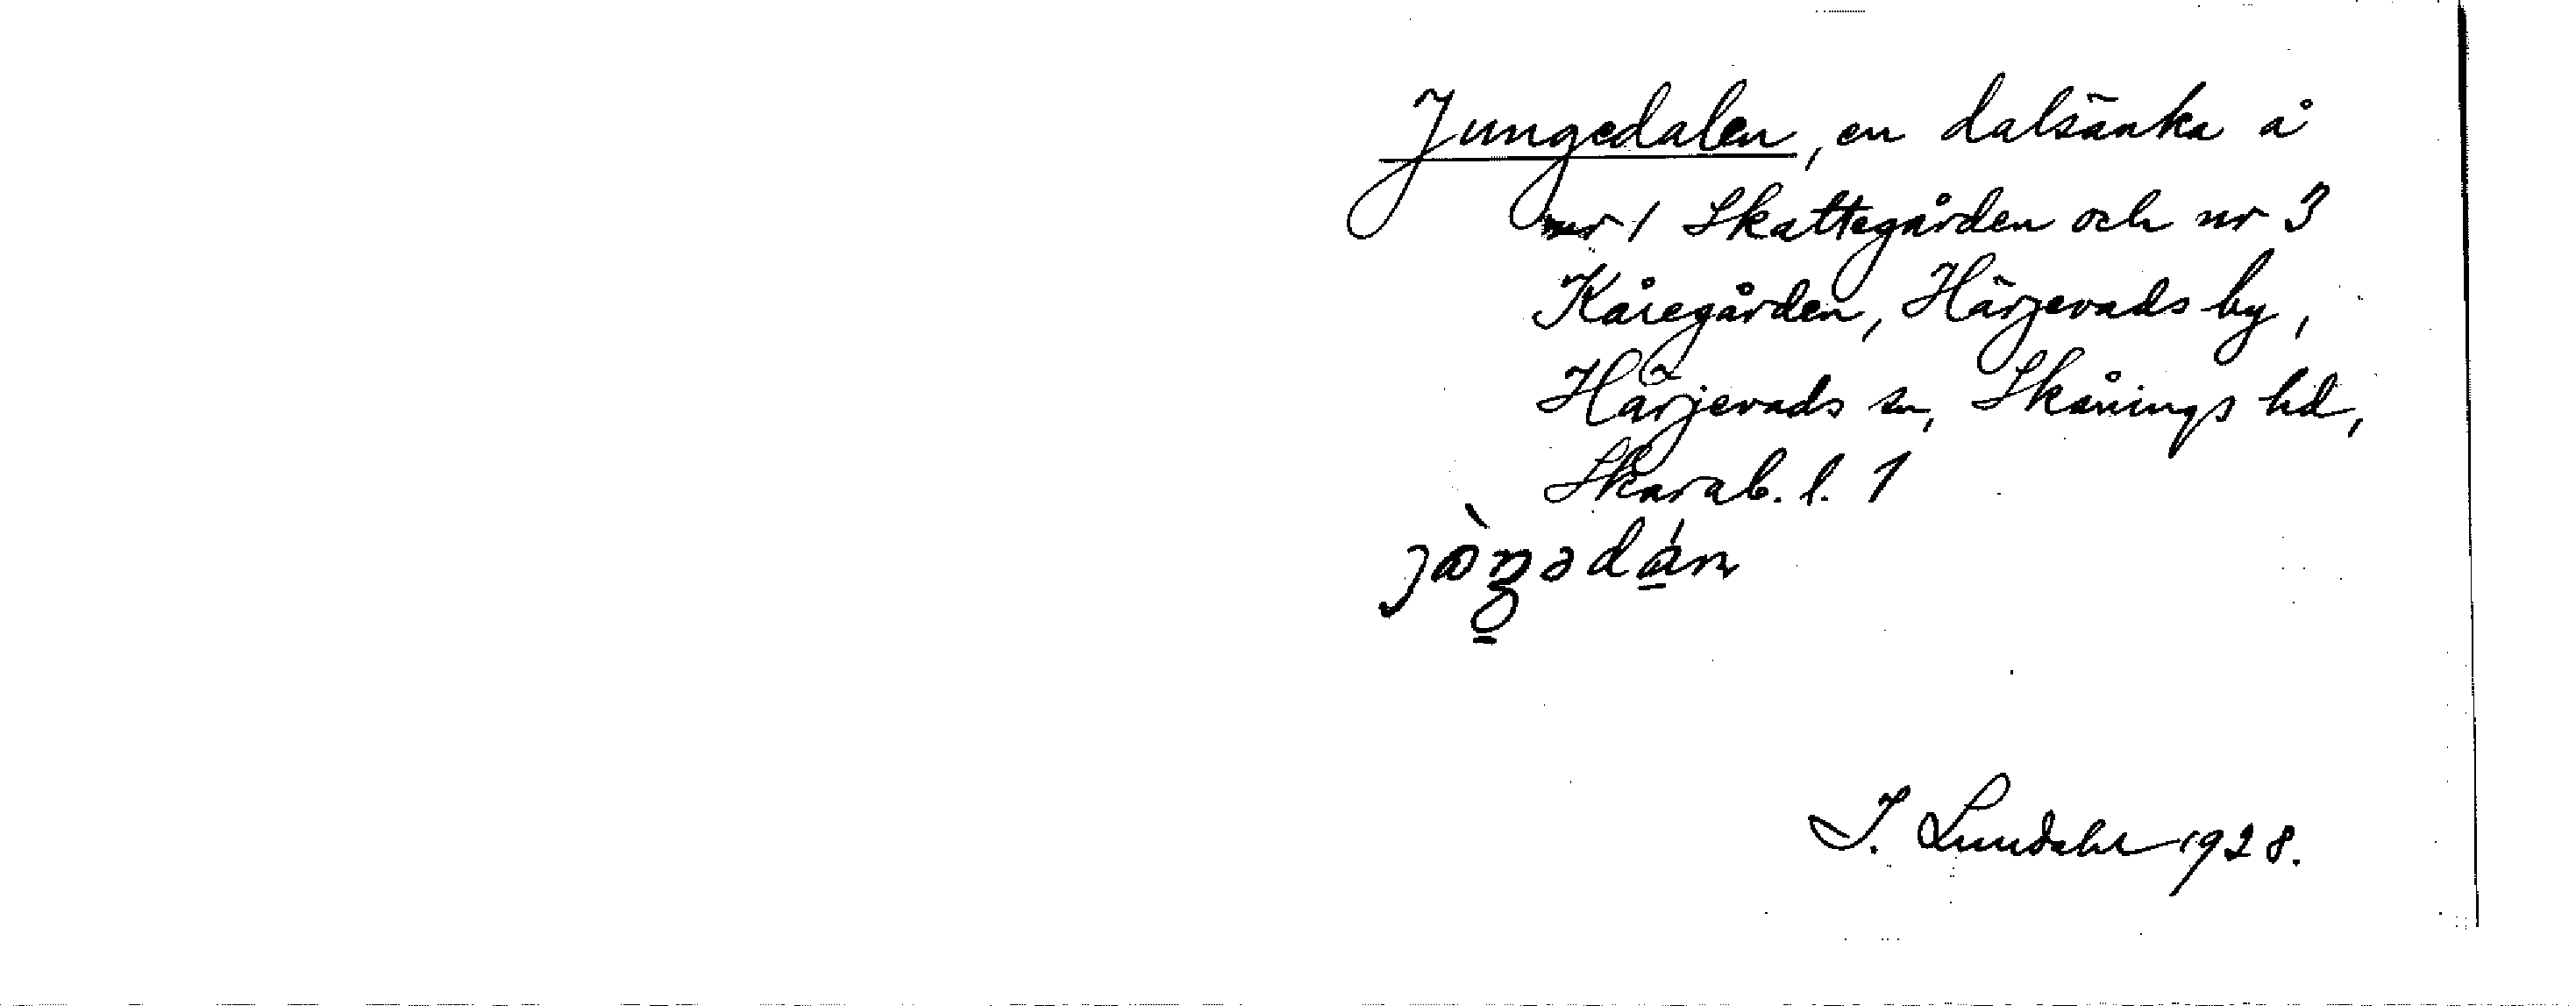 Jungedalen, en dalsänka å
nr 1 Skattegården och nr 3
Kåregården, Härjevads by,
Härjevads sn, Skånings hd,
Skarab. l. 1
I. Lundahl 1928.